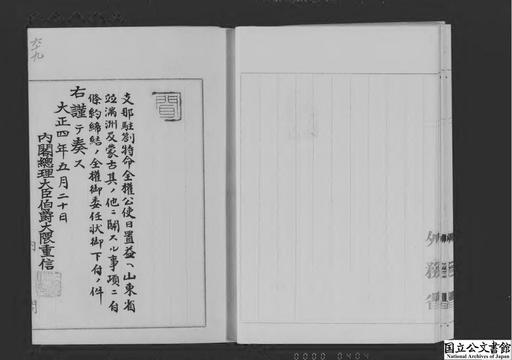 支那駐箚特命全權公使日置益ヘ山東省
竝滿洲及蒙古其ノ他ニ關スル事項ニ付
條約締結ノ全權御委任狀御下付ノ件
右謹テ奏ス
大正四年五月二十日
內閣總理大臣伯爵大隈重信
外務省
国立公文書館
National Archives of Japan